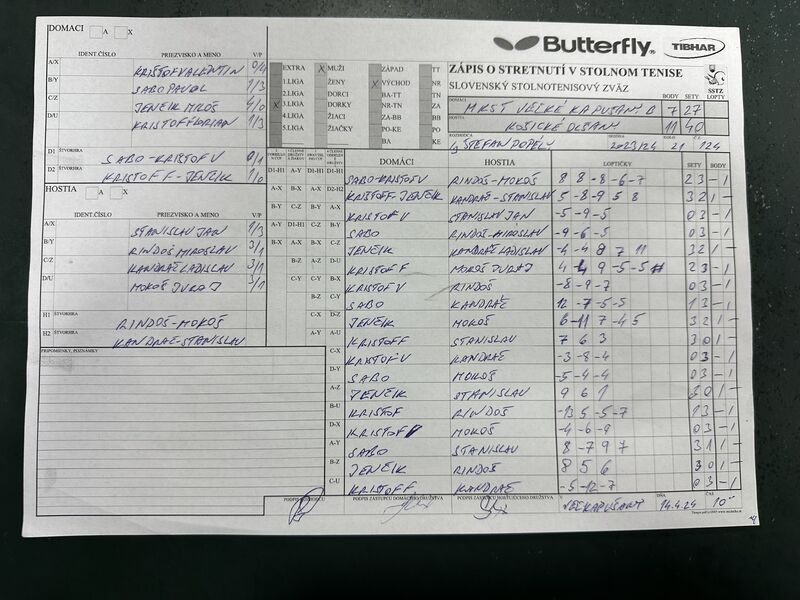 Butterfly® TIBHAR
DOMÁCI A X
IDENT.ČÍSLO PRIEZVISKO A MENO V/P
A/X KRIŠTOF VALENTÍN 0/4
B/Y SABO PAVOL 1/3
C/Z JENČIK MILOŠ 4/0
D/U 1/3
D1 ŠTVORHRA SABO-KRISTOF V 0/1
D2 KRISTOF F-JENČIK 1/0
HOSTIA A X
IDENT.ČÍSLO PRIEZVISKO A MENO V/P
A/X STANISLAV JAN 1/3
B/Y RINDOŠ MIROSLAV 3/1
C/Z KANDRAČ LADISLAV 3/1
D/U MOKOŠ JURAJ 3/1
H1 ŠTVORHRA RINDOŠ-MOKOŠ
H2 ŠTVORHRA KANDRAČ-STANISLAV
PRIPOMIENKY, POZNÁMKY
EXTRA X MUŽI ZÁPAD TT
1.LIGA ŽENY X VÝCHOD NR
2.LIGA DORCI BA-TT ZA
X 3.LIGA DORKY NR-TN ZA
4.LIGA ŽIACI ZA-BB KE
5.LIGA ŽIAČKY PO-KE PO
BA KE
ZÁPIS O STRETNUTÍ V STOLNOM TENISE
SLOVENSKÝ STOLNOTENISOVÝ ZVÄZ
SSTZ
BODY SETY LOPTY
DOMÁCI MKST VEĽKÉ KAPUŠANY B 7 27
HOSTIA KOŠICKÉ OĽŠANY 11 40
ROZHODCA ŠTEFAN DOPĽLY 2023/24 21 124
DOMÁCI HOSTIA LOPTIČKY SETY BODY
D1-H1 SABO-KRISTOF V RINDOŠ-MOKOŠ 8 8 -8 -6 -7 2 3 - 1
D2-H2 KRISTOF F-JENČIK KANDRAČ-STANISLAV 5 -8 -9 5 8 3 2 1 -
KRISTOF V STANISLAV JAN -5 -9 -5 0 3 - 1
SABO RINDOŠ MIROSLAV -9 -6 -5 0 3 - 1
JENČIK KANDRAČ LADISLAV -4 -4 8 7 11 3 2 1 -
KRISTOF F MOKOŠ JURAJ 4 -4 9 -5 -5 2 3 - 1
KRISTOF V RINDOŠ -8 -9 -7 0 3 - 1
SABO KANDRAČ 12 -7 -5 -5 1 3 - 1
JENČIK MOKOŠ 6 -11 7 -4 5 3 2 1 -
A-U KRISTOF F STANISLAV 7 6 3 3 0 1 -
C-X KRISTOF V KANDRAČ -3 -8 -4 0 3 - 1
D-Y SABO MOKOŠ -5 -4 -4 0 3 - 1
A-Z JENČIK STANISLAV 9 6 1 3 0 1 -
B-U KRISTOF RINDOŠ -13 5 -5 -7 1 3 - 1
D-X KRISTOF V MOKOŠ -4 -6 -9 0 3 - 1
A-Y SABO STANISLAV 8 -7 9 7 3 1 1 -
B-Z JENČIK RINDOŠ 8 5 6 3 0 1 -
C-U KRISTOF F KANDRAČ -5 -12 -7 0 3 - 1
PODPIS ROZHODCU PODPIS ZÁSTUPCU DOMÁCEHO DRUŽSTVA PODPIS ZÁSTUPCU HOSŤUJÚCEHO DRUŽSTVA V VEĽ. KAPUŠANY DŇA 14.4.24 ČAS 10